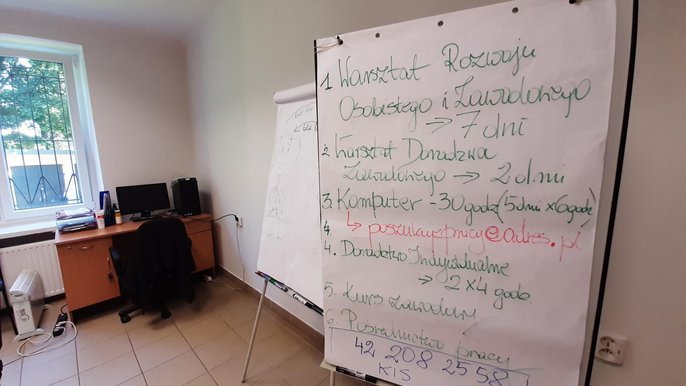 1 Warsztat Rozwoju
Osobistego i Zawodowego
→ 7 dni
2. Warsztat Doradztwa
Zawodowego → 2 dni
3. Komputer - 30 godz (5 dni x 6 godz)
4. ↳ poszukujepracy@adres.pl
4. Doradztwo Indywidualne
→ 2 x 4 godz.
5. Kurs zawodowy
6. Pośrednictwo pracy
42 208 25 58
KIS